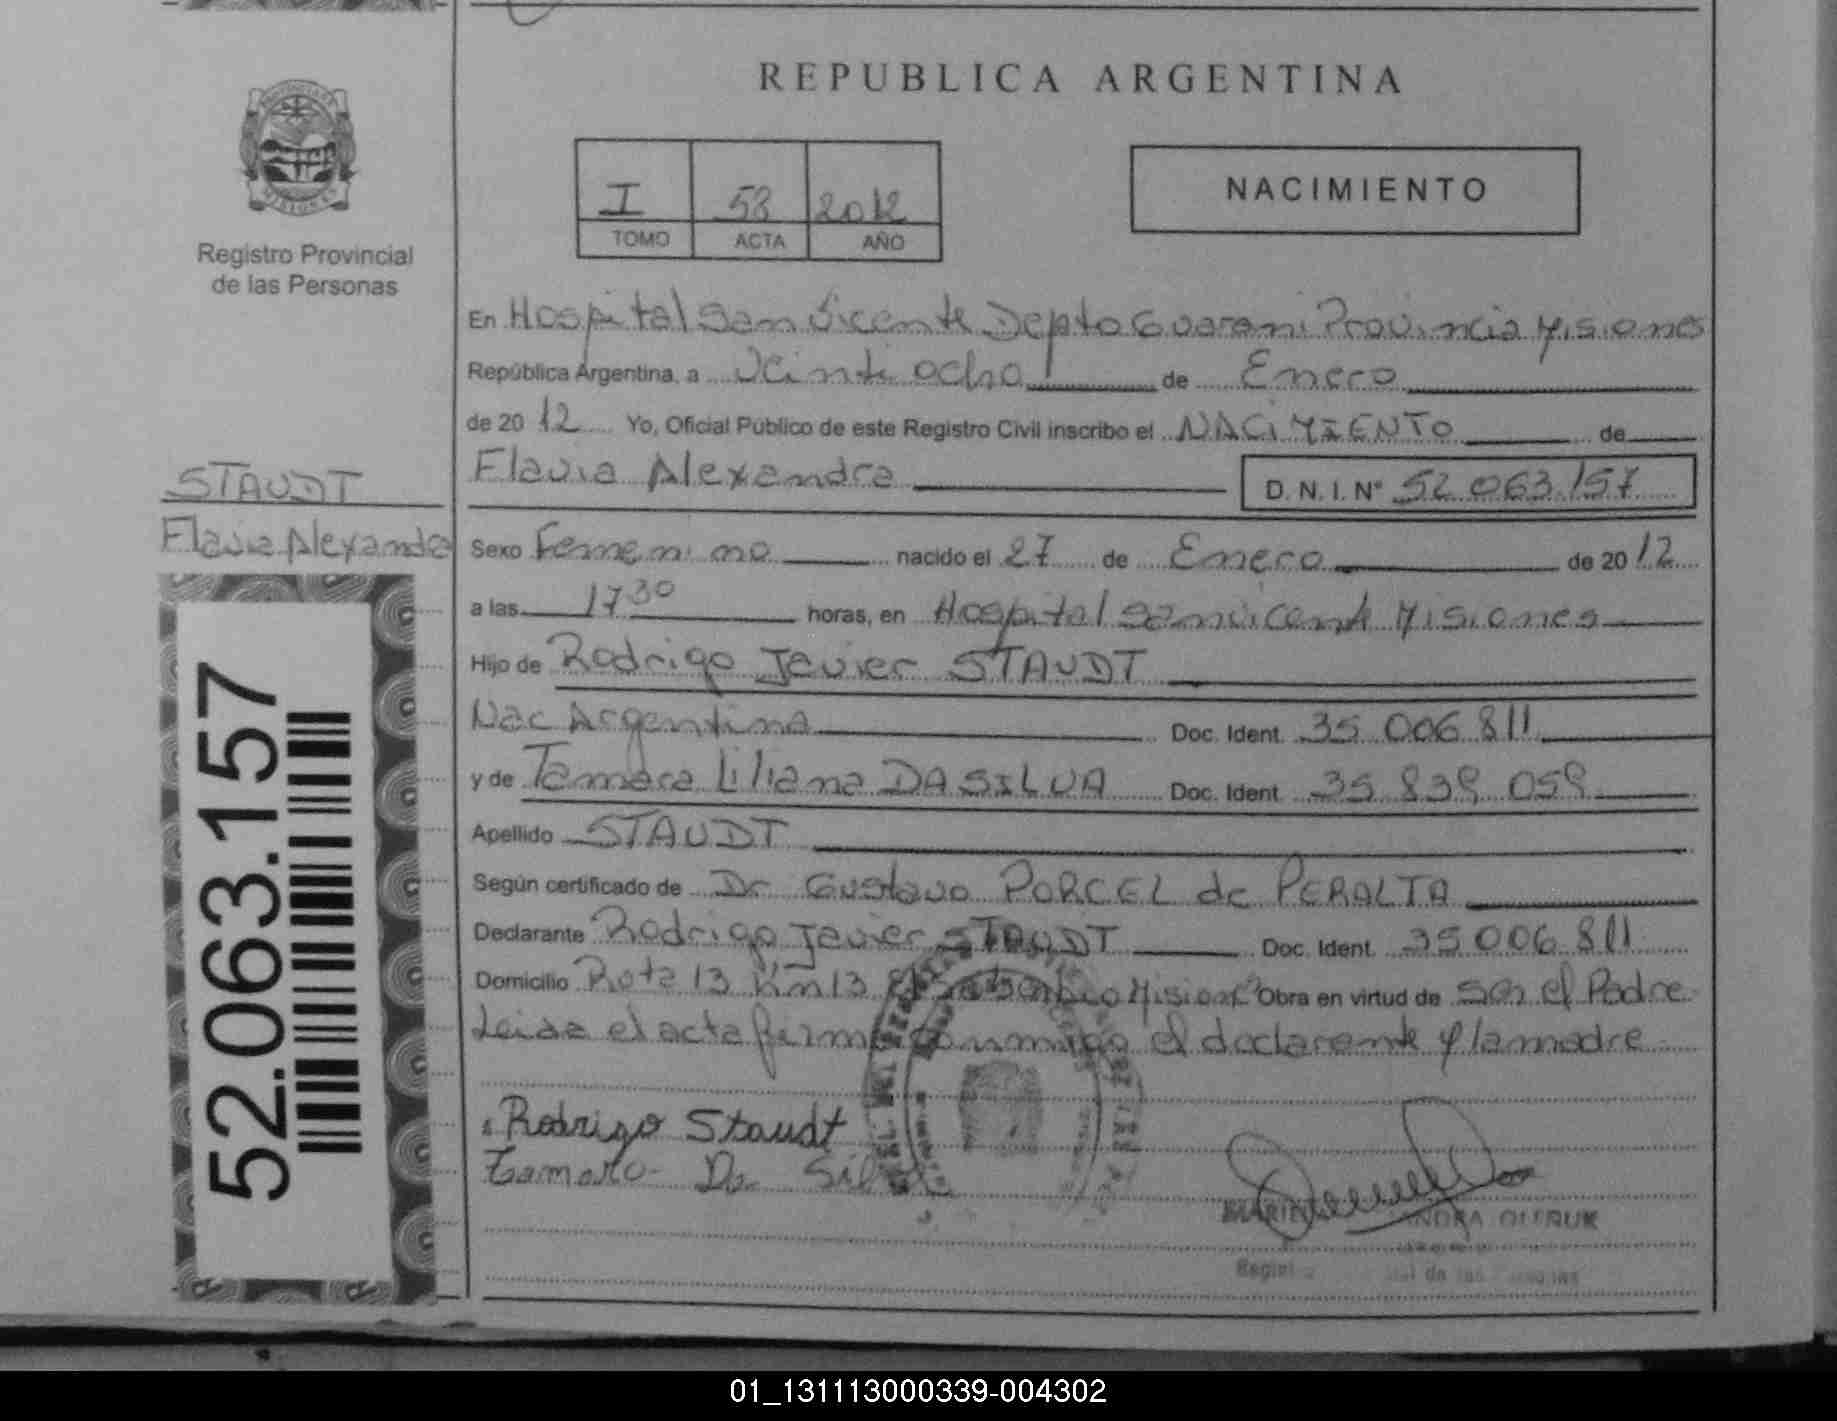 REPUBLICA ARGENTINA
I 53 2012
TOMO ACTA AÑO
NACIMIENTO
Registro Provincial
de las Personas
En Hospital San Vicente Depto Guarani Provincia Misiones
República Argentina, a Veinti ocho de Enero
de 20 12 Yo, Oficial Público de este Registro Civil inscribo el NACIMIENTO de
Flavia Alexandra D.N.I. N° 52.063.157
STAUDT
Flavia Alexandra
Sexo Femenino nacido el 27 de Enero de 20 12
a las 17 30 horas, en Hospital San Vicente Misiones
Hijo de Rodrigo Javier STAUDT
Nac Argentina Doc. Ident. 35 006 811
y de Tamara Liliana DA SILVA Doc. Ident. 35 839 059
Apellido STAUDT
Según certificado de Dr Gustavo PORCEL de PERALTA
Declarante Rodrigo Javier STAUDT Doc. Ident. 35 006 811
Domicilio Rota 13 Km 13 Misiones Obra en virtud de ser el Padre
Leida el acta firma conmigo el declarante y la madre
Rodrigo Staudt
Tamara Da Sil
52.063.157
01_131113000339-004302